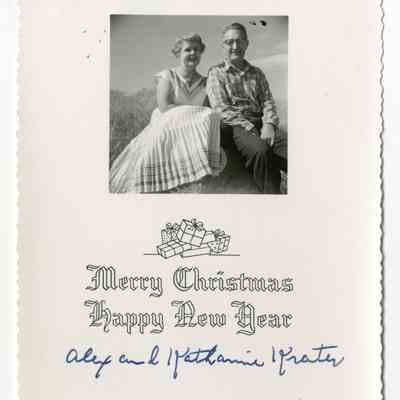 Merry Christmas
Happy New Year
Alex and Katharine Krater